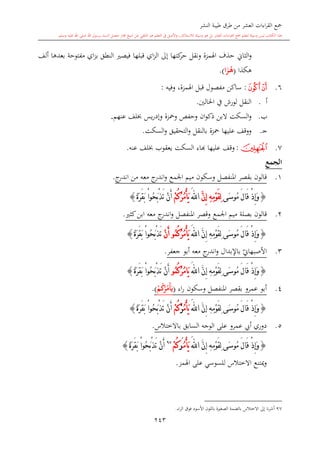 جمع القراءات العشر من طرق طيبة النشر
والثاني حذف الهمزة ونقل حركتها إلى الزاي قبلها فيصير النطق بزاي مفتوحة بعدها ألف
هكذا (هُزَا).
٦. أَنْ أَكُونَ : ساكن مفصول قبل الهمزة، وفيه :
أ . النقل لورش في الحالين.
ب. والسكت لابن ذكوان وحفص وحمزة وإدريس بخلف عنهم.
جـ. ووقف عليها حمزة بالنقل والتحقيق والسكت.
٧. الْجَاهِلِينَ : وقف عليها بهاء السكت يعقوب بخلف عنه.
الجمع
١. قالون بقصر المنفصل وسكون ميم الجمع واندرج معه من اندرج.
﴿ وَإِذْ قَالَ مُوسَى لِقَوْمِهِ إِنَّ اللَّهَ يَأْمُرُكُمْ أَنْ تَذْبَحُوا بَقَرَةً ﴾
٢. قالون بصلة ميم الجمع وقصر المنفصل واندرج معه ابن كثير.
﴿ وَإِذْ قَالَ مُوسَى لِقَوْمِهِ إِنَّ اللَّهَ يَأْمُرُكُمُو أَنْ تَذْبَحُوا بَقَرَةً ﴾
٣. الأصبهاني بالإبدال واندرج معه أبو جعفر.
﴿ وَإِذْ قَالَ مُوسَى لِقَوْمِهِ إِنَّ اللَّهَ يَامُرُكُمُو أَنْ تَذْبَحُوا بَقَرَةً ﴾
٤. أبو عمرو بقصر المنفصل وسكون راء (يَأْمُرْكُمْ).
﴿ وَإِذْ قَالَ مُوسَى لِقَوْمِهِ إِنَّ اللَّهَ يَأْمُرْكُمْ أَنْ تَذْبَحُوا بَقَرَةً ﴾
٥. دوري أبي عمرو على الوجه السابق بالاختلاس.
﴿ وَإِذْ قَالَ مُوسَى لِقَوْمِهِ إِنَّ اللَّهَ يَأْمُرُكُمْ ٩٧ أَنْ تَذْبَحُوا بَقَرَةً ﴾
ويمتنع الاختلاس للسوسي على الهمز.
٩٧ أشرنا إلى الاختلاس بالضمة الصغيرة باللون الأسود فوق الراء.
٢٤٣